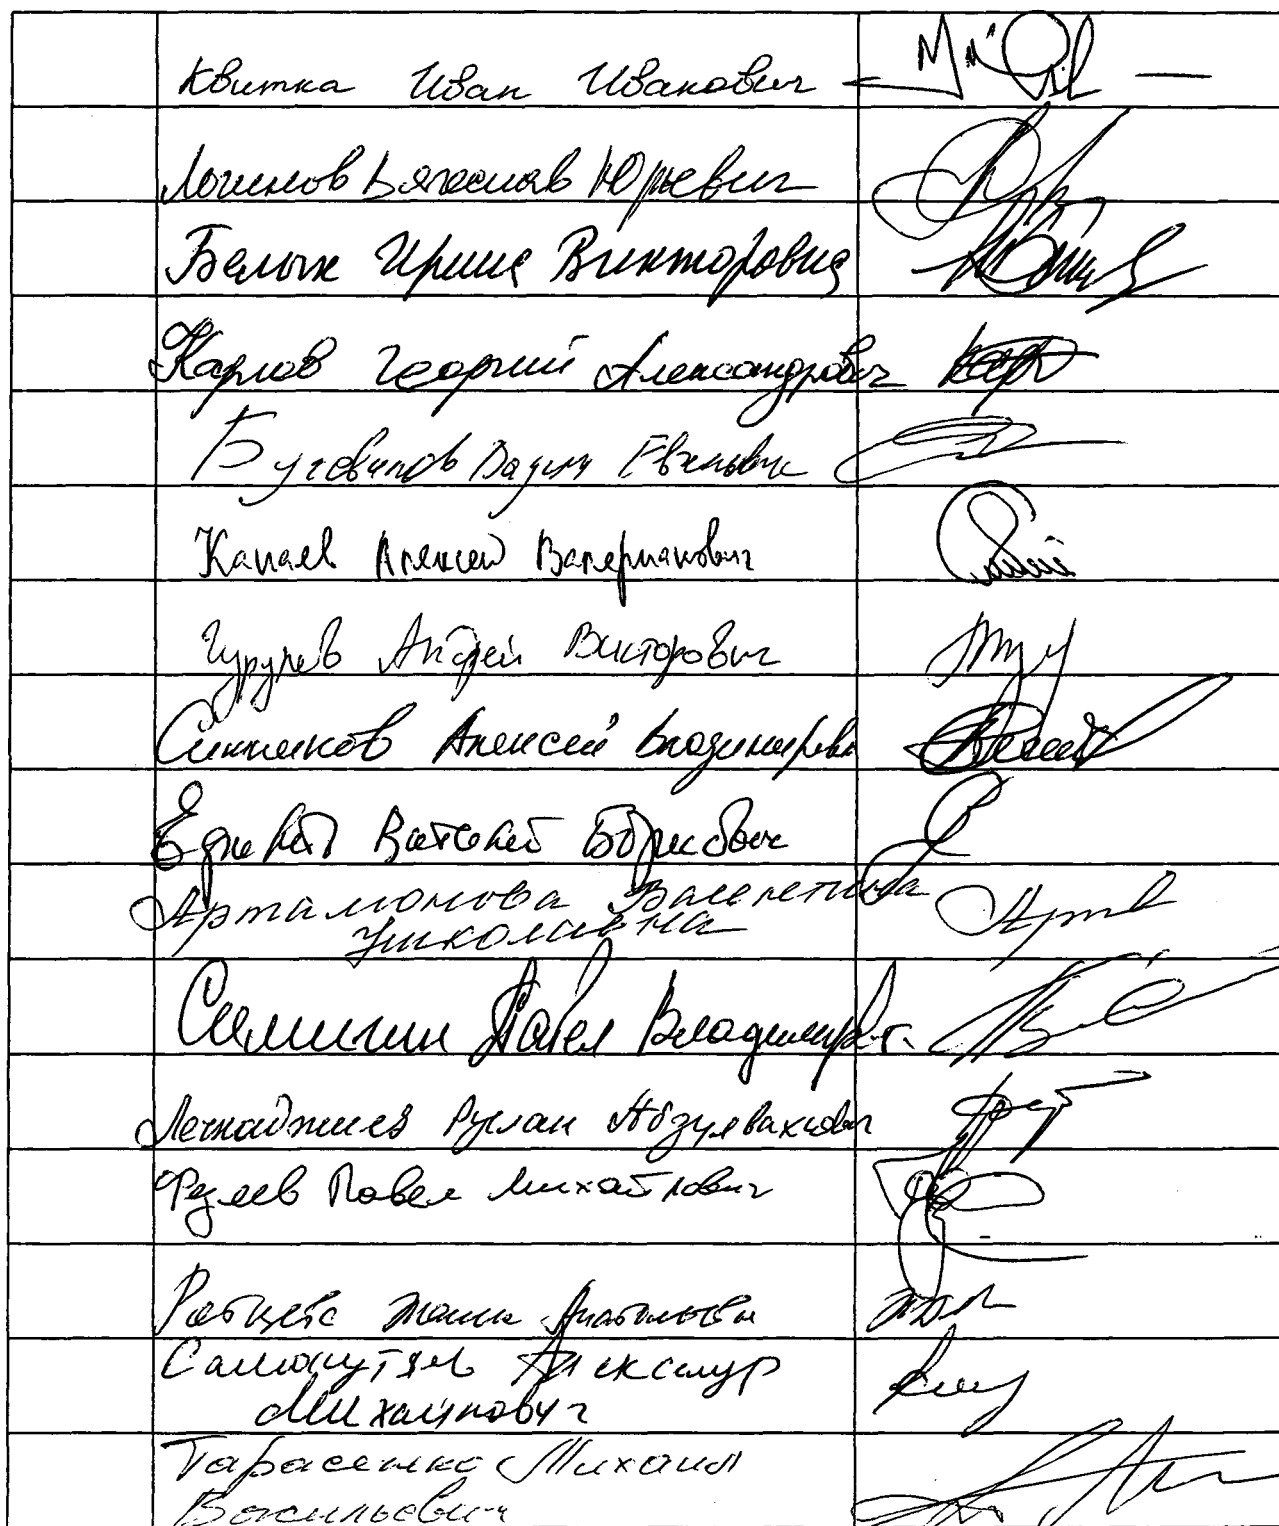 Квитка Иван Иванович
Логинов Вячеслав Юрьевич
Белых Ирина Викторовна
Карлов Георгий Александрович
Вадим Евгеньевич
Канаев Алексей Валерианович
Гурулев Андрей Викторович
Синицын Алексей Владимирович
Виталий Борисович
Артамонова Валентина
Николаевна
Симигин Павел Владимирович.
Лечхаджиев Руслан Абдулвахидович
Федяев Павел Михайлович
Рябцева Жанна Анатольевна
Самокутяев Александр
Михайлович
Тарасенко Михаил
Васильевич